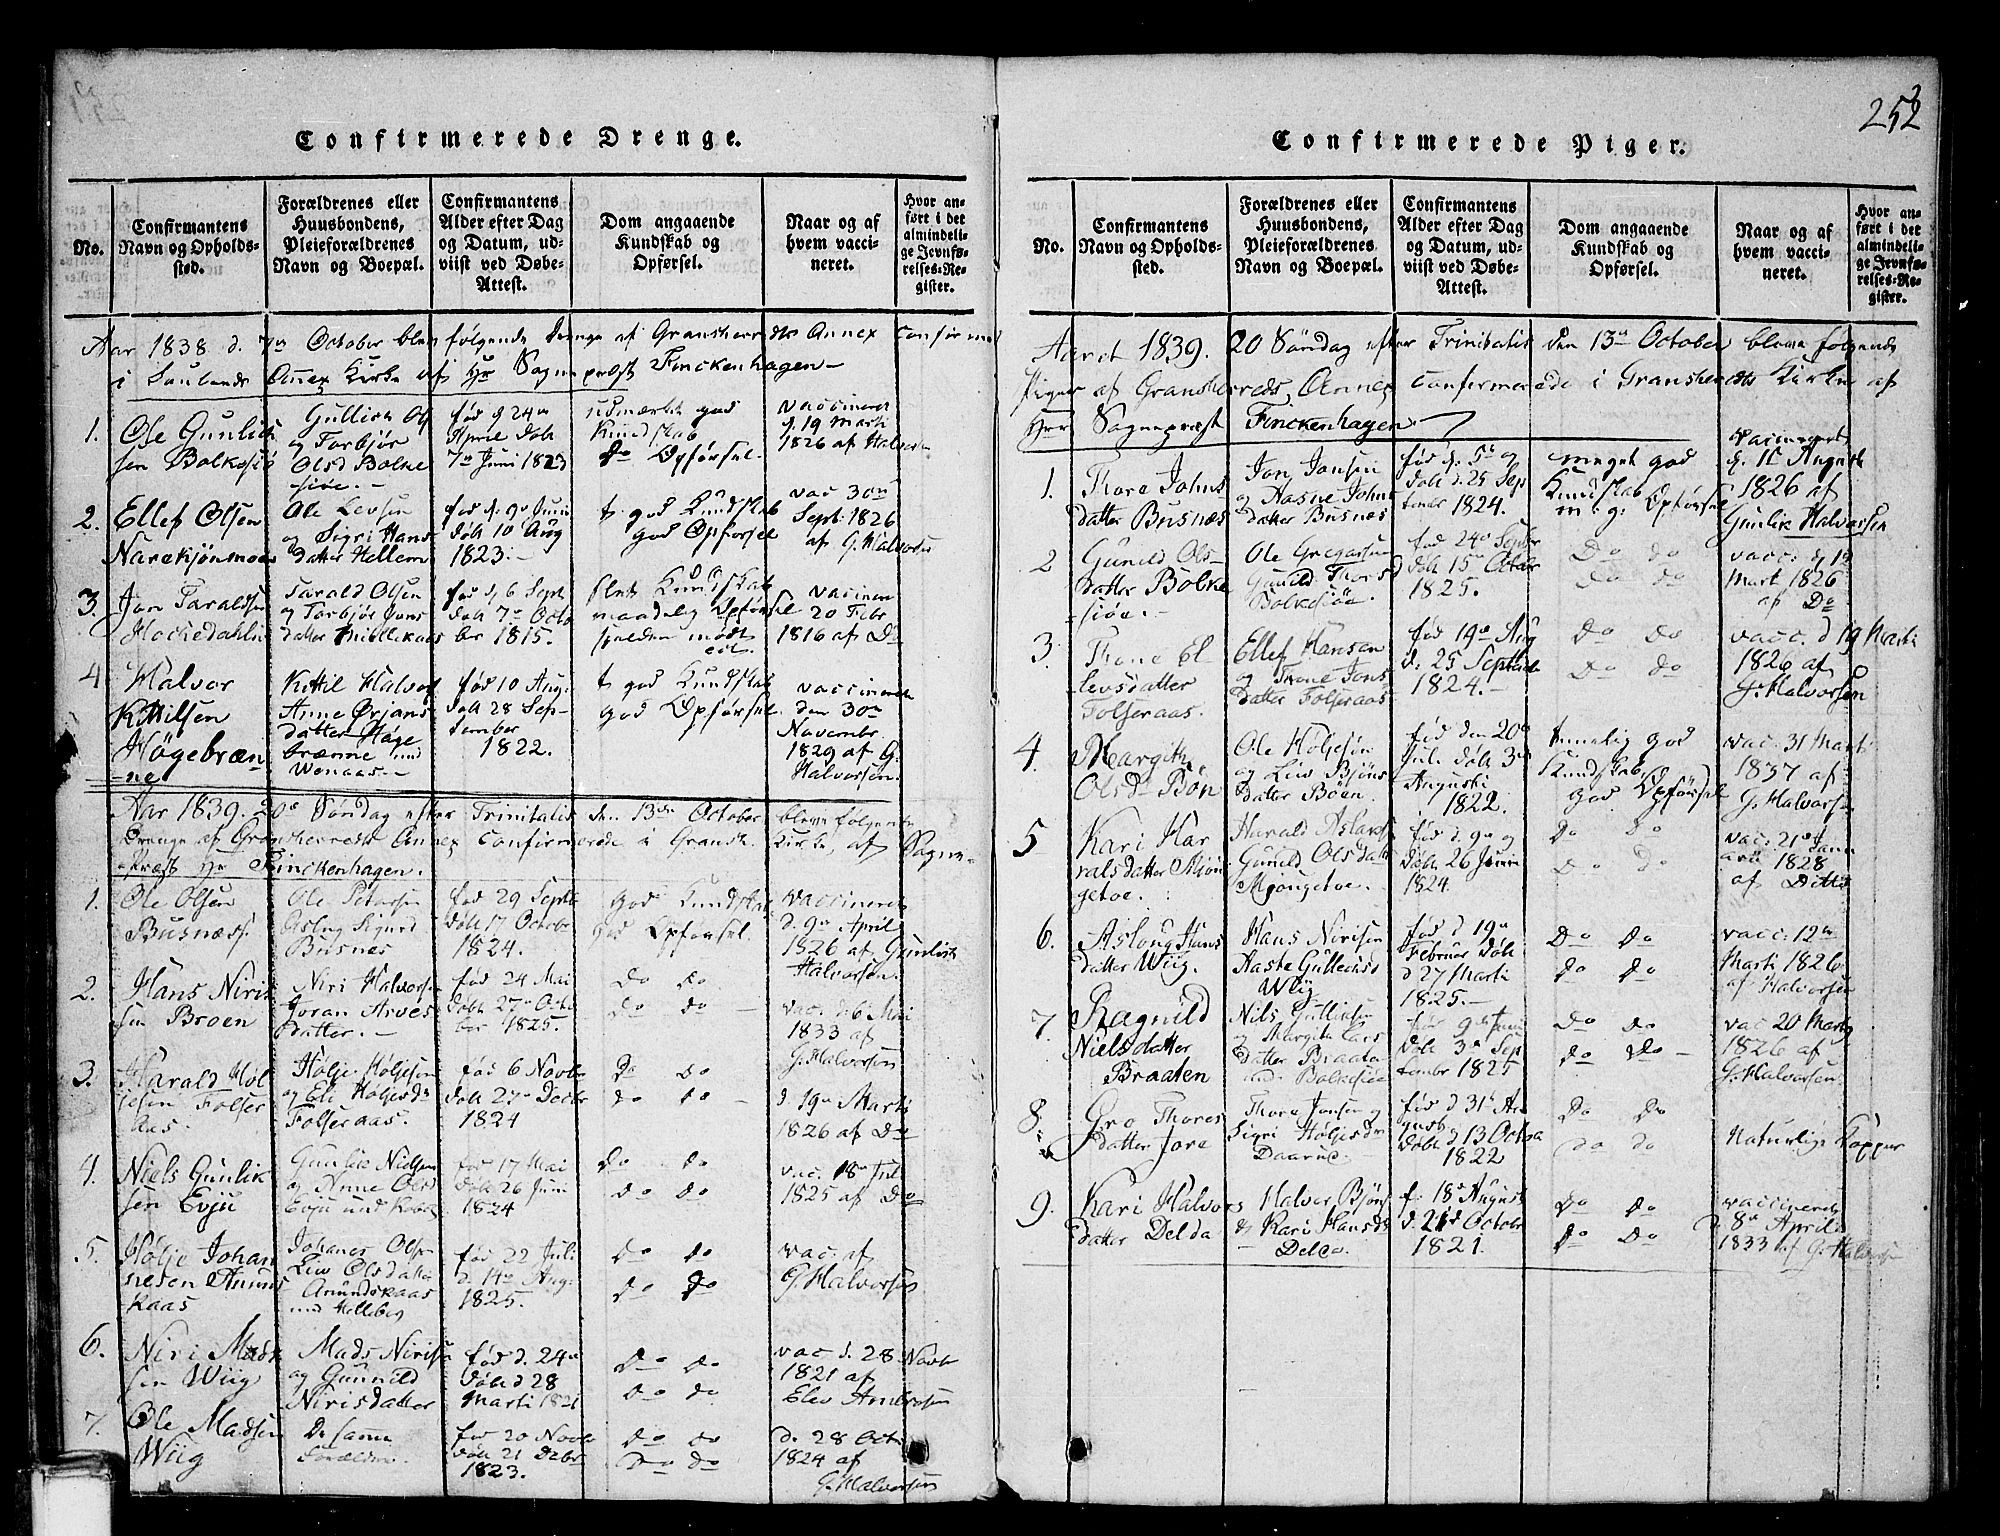 252
Confirmerede Drenge.
No.
Confirmantens
Navn og Opholds-
sted.
Forældrenes eller
Huusbondens,
Pleieforældrenes
Navn og Boepæl.
Confirmantens
Alder efter Dag
og Datum, ud-
viist ved Døbe-
Attest.
Dom angaaende
Kundskab og
Opførsel.
Naar og af
hvem vacci-
neret.
Hvor an-
ført i det
almindeli-
ge Jevnfø-
relses-Re-
gister.
Aar 1838 d. 7de October blev følgende Drenge af Gransherreds Annex Confirmered
i Saulands Annex Kirke af Hr Sogneprest Finckenhagen
1.
Ole Gunlick
sen Bolkesiø
Gullick Ols
og Torbjør
Olsd Bolke
siøe.
fød d 24de
April døbt
7de Juni 1823
udmærket god
Kundskab
do Opførsel
vaccineret
d. 19 Marti
1826 af Halvorsen
2.
Ellef Olsen
Narekjønmoen
Ole Levsen
og Sigri Hans
datter Hellem
fød d. 9de Juni
døbt 10 Aug
1823
t. god Kundskab
god Opførsel
vac 30te
Sept. 1826
af G. Halvorsen
3.
Jon Taraldsen
Hockedahlen
Tarald Olsen
og Torbjør Jons
datter
fød d. 6 Sept
døbt 7de Octo
ber 1815.
slet Kundskab
maadelig Opførsel
sielden mødt
vaccineret
20 Febr
1816 af Do
4
Halvor
Kittilsen
Høgebræn-
ne
Kittil Halvors
Anne Ørjans
datter Høge
brænne und
Wenaas.
fød 10 Aug:
døbt 28 Sep-
tember
1822.
t god Kundskab
god Opførsel
vaccineret
den 30te
Novembr
1829 af G.
Halvorsen.
Aar 1839. 20de Søndag efter Trinitatis den 13de October bleve følgende
Drenge af Gransherreds Annex Confirmerede i Gransh. Kirke, af Sogne-
præst Hr Finckenhagen.
1.
Ole Olsen
Busnæs
Ole Petersen
Aslug Sigurd
Busnes
fød 29 Septb
døbt 17 Octobr
1824.
god Kundskab
god Opførsel.
vaccineret
d. 9de April
1826 af Gunlick
Halvorsen.
2.
Hans Niri
sen Broen
Niri Halvorsen
Joran Arves
datter.
fød 24 Mai
døbt 27de Octo
ber 1825.
Do do
Do do
vac. d 6 Mai
1833 af
G. Halvorsen
3.
Harald Høl
jesen Folser
Aas.
Hølje Høljesen
og Eli Høljesdr
Folseraas.
fød 6 Novbr
døbt 27de Decbr
1824
Do do
Do do
d. 19de Marti
1826 af Do
4.
Niels Gunlik
sen Evju
Gunlik Nielsen
og Anne Olsd
Evju und
fød 17 Mai
døbt 26 Juni
1824
Do do
Do do
vac. 18de Jul
1825 af Do
5.
Hølje Johan
nesen Amunds
kaas
Johanes Olsen
Liv Olsdatter
Amundskaas
und Helleberg
fød 22 Juli
d. 14de Aug:
1825.
Do do
Do do
vac. af
G. Halvorsen
6.
Niri Mads
sen Wiig
Mads Nirisen
og Gunnild
Nirisdatter
fød d. 24de
døbt d 28
Marti 1821
Do do
Do do
vac d. 28 Novbr
1821 af
Elev Ambrosen
7.
Ole Madsen
Wiig
De samme
Forældre.
fød 20 Novbr
døbt 21 Debr
1823.
Do do
Do do
d. 28 Octb
1824 af
G. Halvorsen
Confirmerede Piger.
No.
Confirmantens
Navn og Opholds-
sted.
Forældrenes eller
Huusbondens,
Pleieforældrenes
Navn og Boepæl.
Confirmantens
Alder efter Dag
og Datum, ud-
viist ved Døbe-
Attest.
Dom angaaende
Kundskab og
Opførsel.
Naar og af
hvem vacci-
neret.
Hvor an-
ført i det
almindeli-
ge Jevnfø-
relses-Re-
gister.
Aaret 1839. 20 Søndag efter Trinitatis den 13de October bleve følgende
Piger af Gransherreds Annex Confirmerede i Gransherreds Kirke af
Herr Sognepræst Finckenhagen
1.
Thore Johns
datter Busnæs
Jon Jonsen
og Aasne Johns
datter Busnæs
fød d. 5te og
døbt d. 25 Sep
tember 1824.
meget god
Kundskab
m. g. Opførsel
Vaccineret
d. 11 August
1826 af
Gunlik Halvorsen
2
Gunild Ols-
datter Bolke
siøe.
Ole Gregarsen
Gunild Thorsd
Bolkesiøe
fød 24de Septbr
døbt 15de Octobr
1825.
Do do
Do do
vacc. d 1te
Mart 1826
af Do
3.
Thone El
levsdatter
Folseraas.
Ellef Hansen
og Thone Jons
datter Folseraas
fød 19de Aug
d. 25 Septbr
1824.
Do do
Do do
vacc. d 19 Marti
1826 af
G. Halvorsen
4.
Margithe
Olsdr Bøn
Ole Høljesøn
og Liv Bjøns
datter Bøen.
fød den 20de
Jul. døbt 3de
Augusti
1822.
temelig god
Kundskab
god Opførsel
vac. 31 Marti
1837 af
G. Halvorsen
5
Kari Har
ralsdatter Mjøn
getoe.
Harald Aslaks
Gunild Olsdatt
Mjøngetoe.
fød d 9de og
døbt 26 Juni
1824.
Do do
Do do
vac. 21de Janu
arii 1828
af Ditto
6.
Asloug Hans
datter Wiig.
Hans Nirisen
Aaste Gulleicsd
Wiig
fød d 19de
Februar døbt
d 27 Marti
1825.
Do do
Do do
vacc: 12te
Marti 1826
af Halvorsen
7.
Ragnild
Nielsdatter
Braaten
Nils Gullicsen
Margita Lars
datter Braata
und. Bolkesiøe
fød 9de Juni
døbt 3de Sep
tembr 1825
Do do
Do do
vac 20 Marti
1826 af
G. Halvorsen.
8.
Gro Thores
datter Jore
Thore Jonsen og
Sigri Høljesdr
fød d 31te Au
gusti
døbt d 13 Octbr
1822
Do do
Do do
Naturlige Kopper
9.
Kari Halvors
datter Delda
Halvor Bjøns
Kari Hansdr
f: 18de August
d. 21d Octobr
1821.
Do do
Do do
vaccineret
d 8de April
1833 af G. Halvorsen